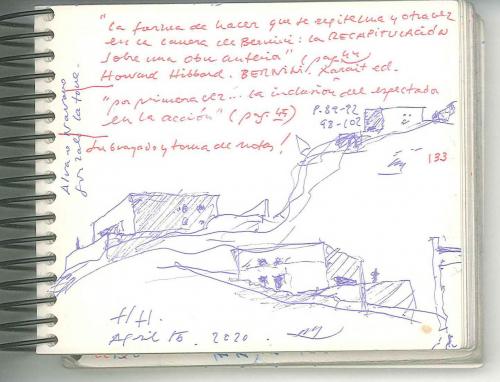 "la forma de hacer que se repite una y otra vez
en la carrera de Bernini: la RECAPITULACIÓN
sobre una obra anterior" (pag. 44)
Howard Hibbard. BERNINI. Xarait ed.
"por primera vez... la inclusión del espectador
en la acción" (pag. 45)
Subrayado y toma de notas!
P. 89-92
98-102
133
Alvaro Navarro
H.H.
April 15. 2020.